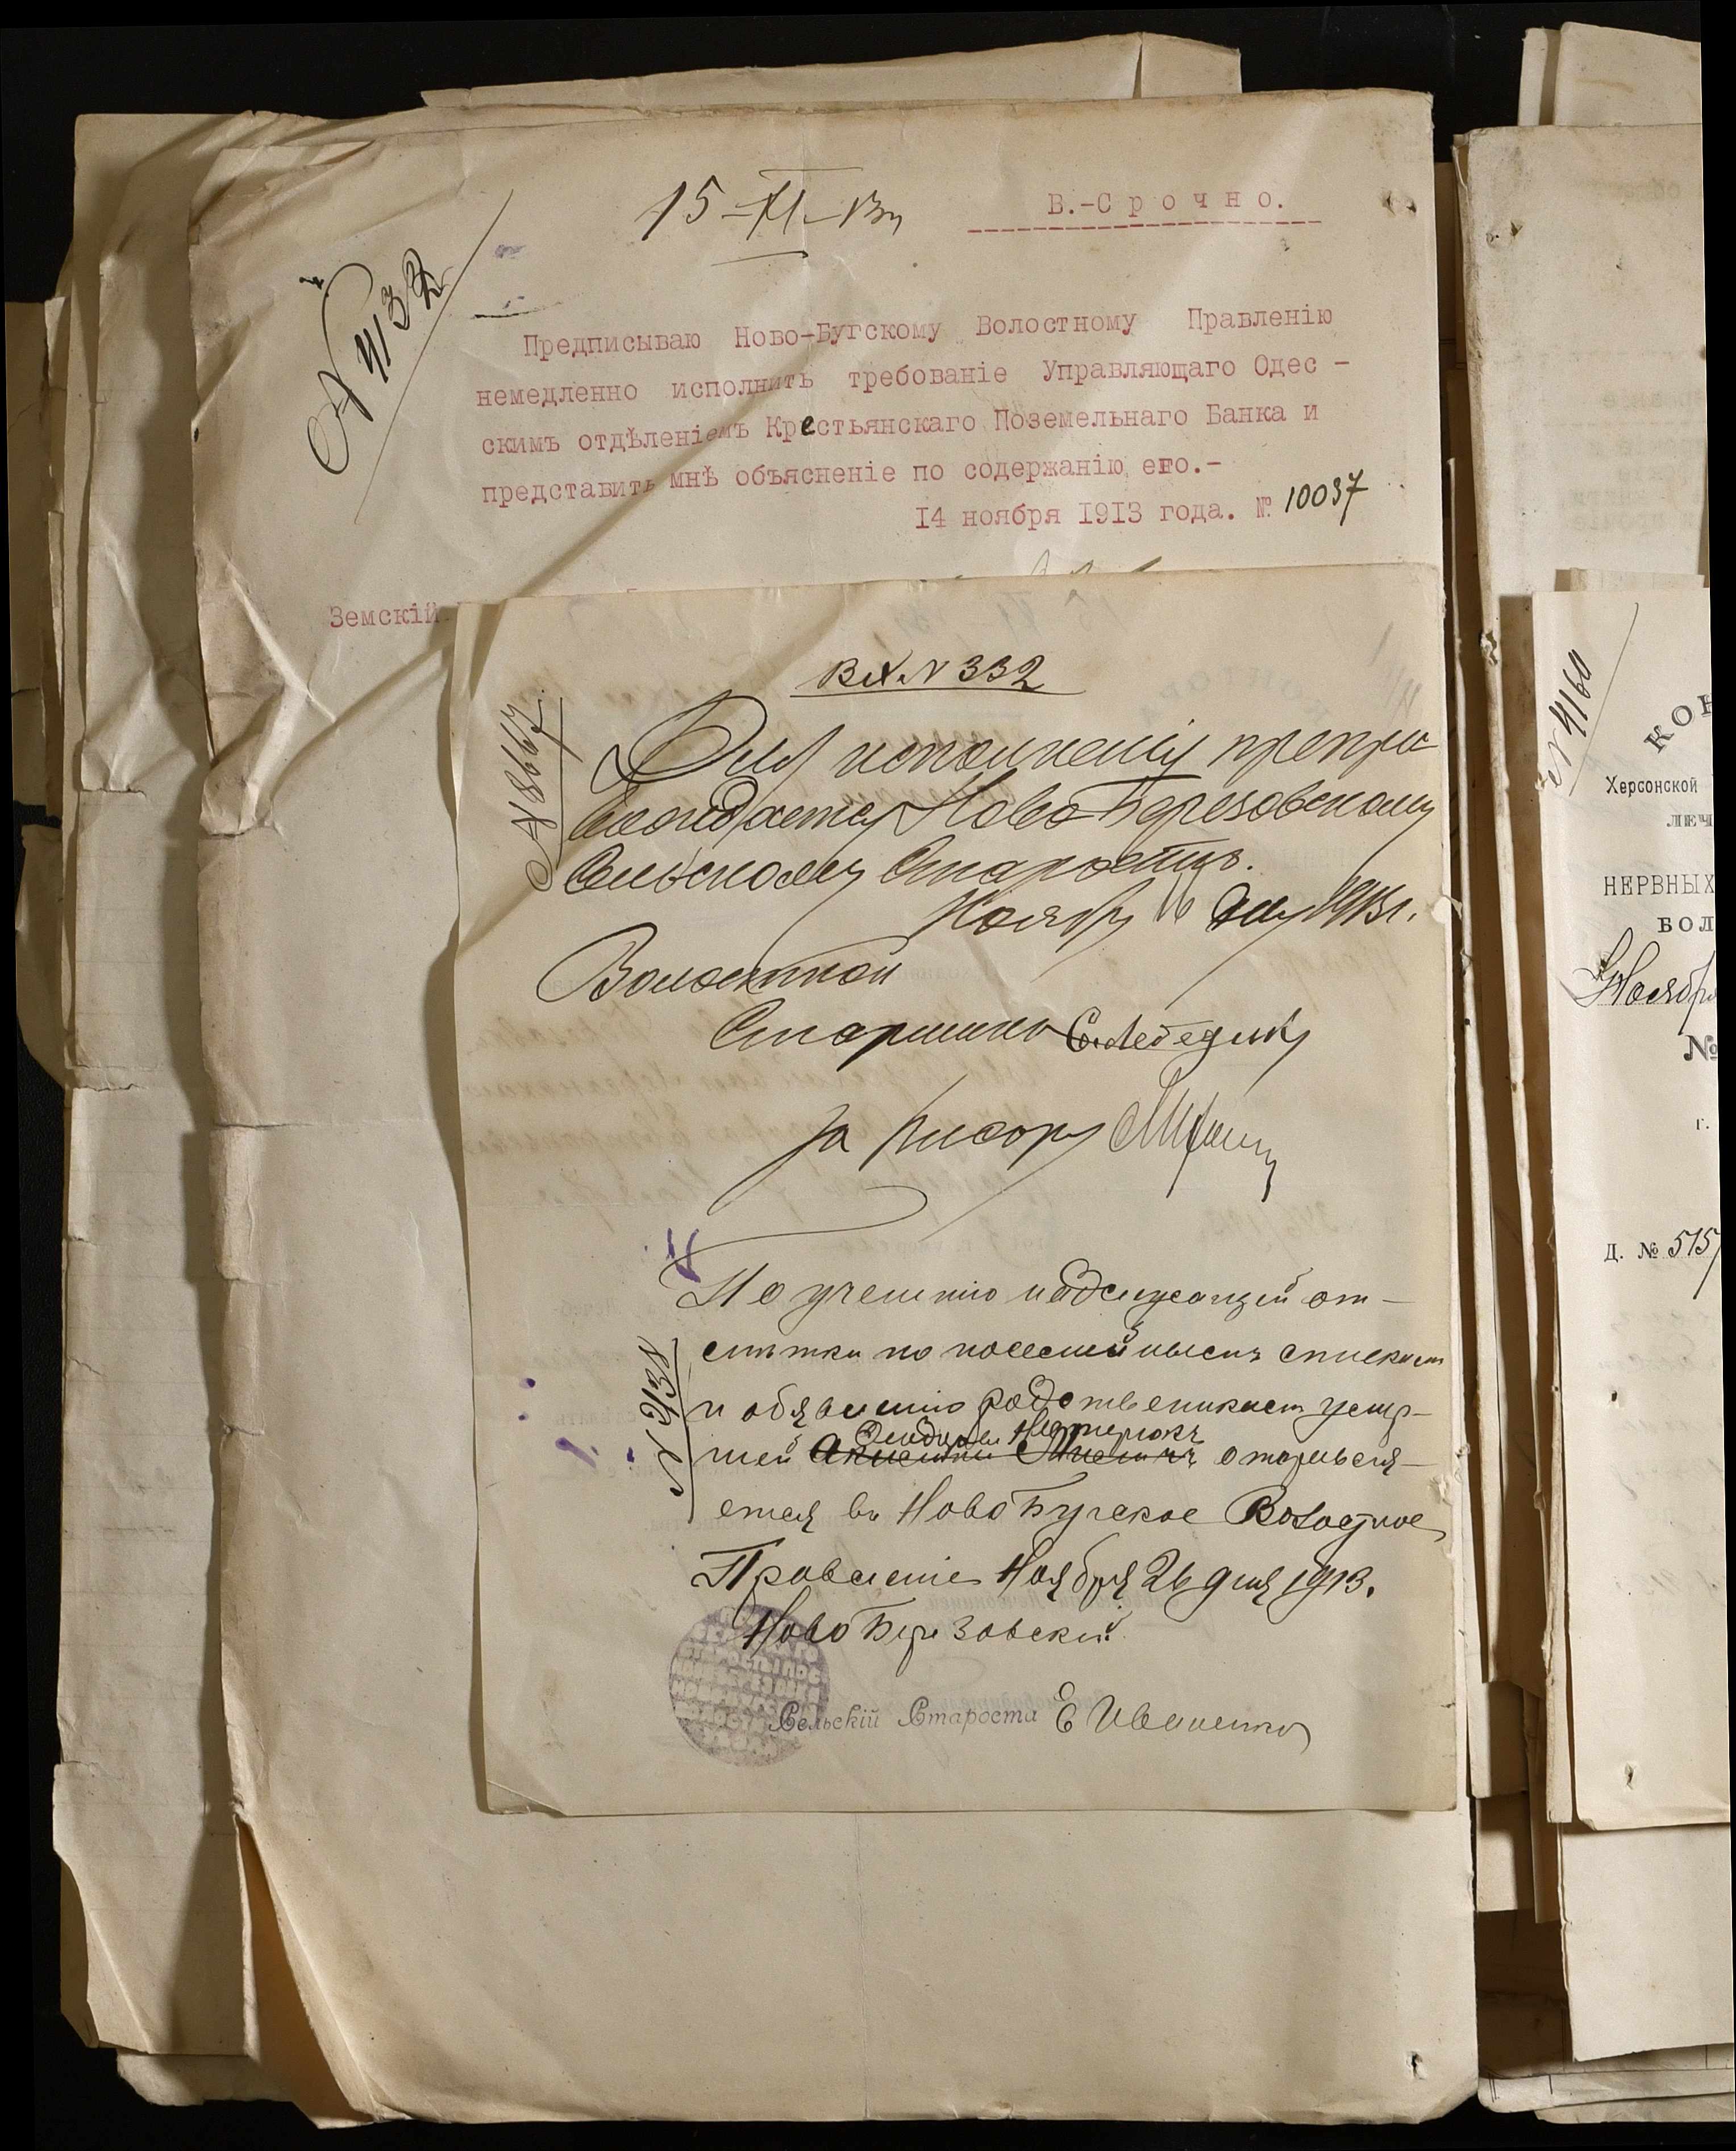 15-XI-13 г
В.-Срочно.
№ 4132
Предписываю Ново-Бугскому Волостному Правленію
немедленно исполнить требованіе Управляющаго Одес -
скимъ отдѣленіемъ Крестьянскаго Поземельнаго Банка и
представить мнѣ объясненіе по содержанію его.-
14 ноября 1913 года. № 10037
Земскій
Вх. № 332
№ 8667.
Для исполненія препро-
вождается Ново-Березовскому
Сельскому Старостѣ.
Ноября 16 дня 1913 г.
Волостной
Старшина
За Писаря
№ 438
По учененію надлежащей от-
слѣтки по посемейнымъ спискам
и объявленію родственикам умер-
шей Акнелини отправля-
ется въ Ново Бугское Волостное
Правленіе Ноября 26 дня 1913.
Ново Березовскій
Сельскій Староста Е Иваненко
№ 4160
КОН
Херсонской
ЛЕЧ
НЕРВНЫХ
БОЛ
Ноябр
№
г.
Д. № 5157